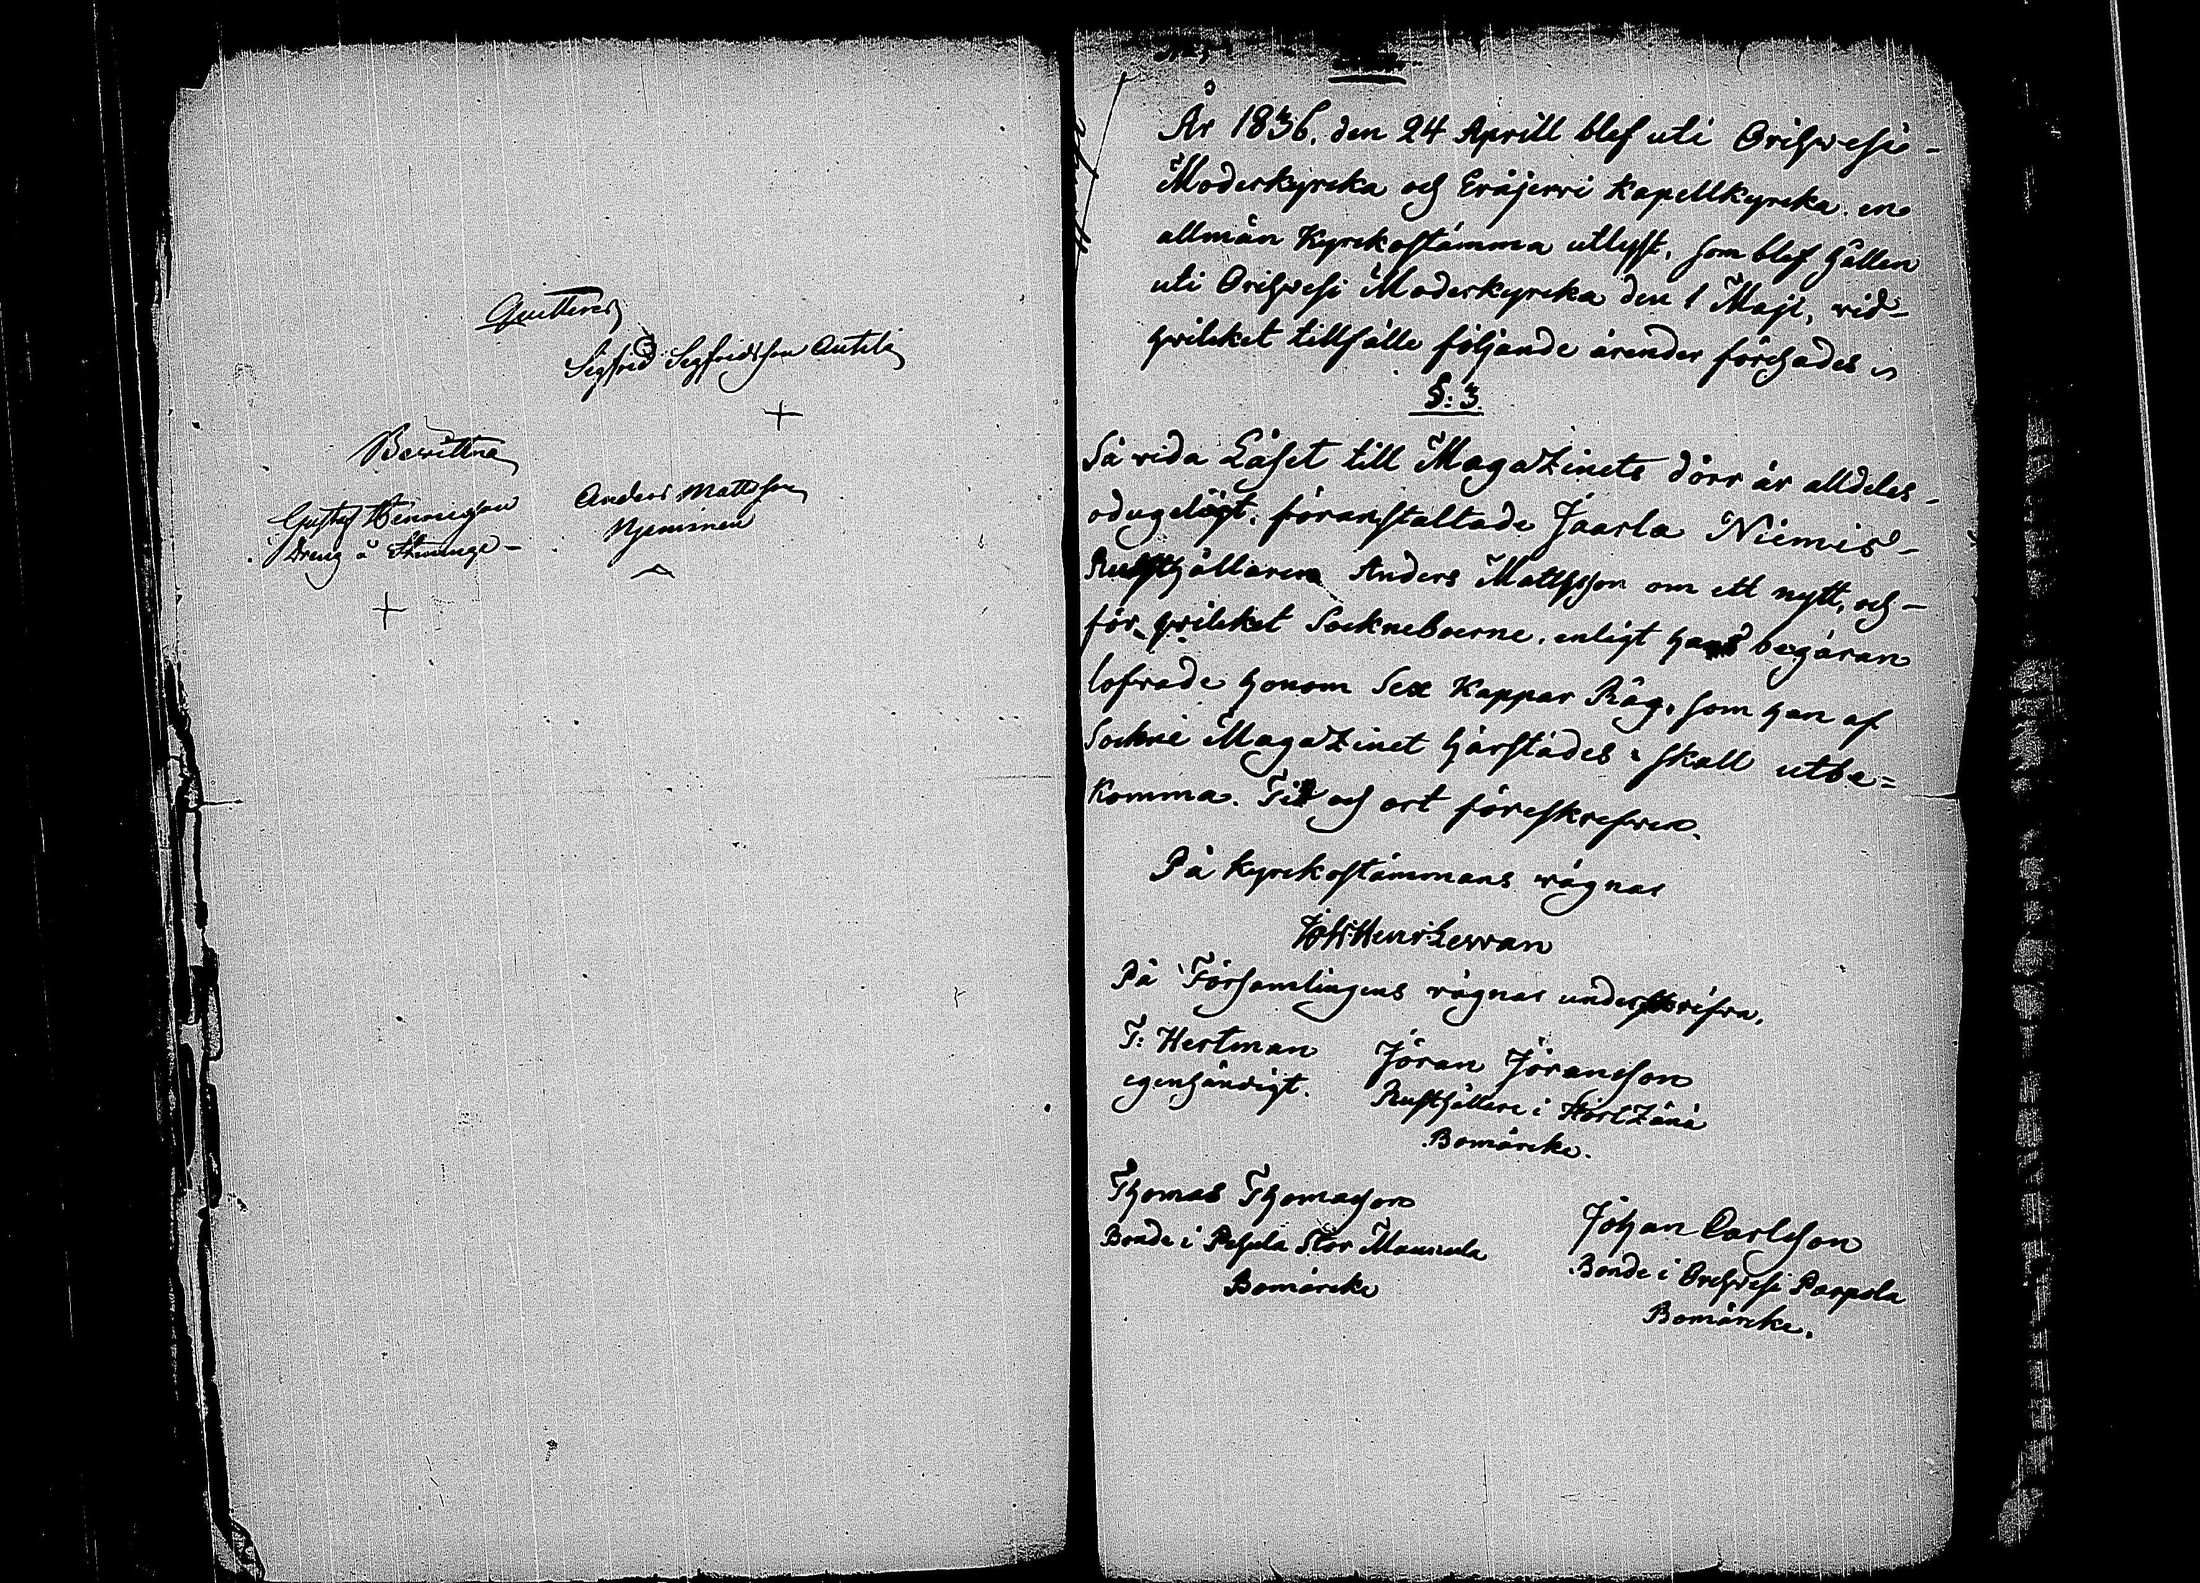 Quitteras
Sigfrid Sigfridsson Antila
+
Bewittna
Gustaf Henricsson
Dreng å
+
Anders Mattsson
Nyeminen
År 1836, den 24 Aprill blef uti Orihwesi-
Moderkyrcka och Eräjerri Kapellkyrcka en
allmän Kyrckostämma utlyst, som blef hållen
uti Orihwesi Moderkyrcka den 1 Maji, vid-
hvilcket tillfälle följande ärender förehades
§: 3.
Så vida Låset till MagaZinets dörr är alldeles-
odugeligt, föranstaltade Jaarla Niemis-
Rusthållaren Anders Mattsson om ett nytt, och-
för hvilcket Sockneboerne, enligt hans begäran
lofvade honom Sex Kappar Råg, som han af
Sockne MagaZinet härstädes skall utbe=
komma. Tid och ort föreskrefven.
På Kyrckostämmans vägnar
Joh: Henr: Levvan
På Församlingens vägnar underskrifva,
T: Hertman
egenhändigt.
Jöran Jöransson
Rusthållare i HörtZänä
Bomärcke.
Thomas Thomasson
Bonde i Pehula Stor Maunula
Bomärcke
Johan Carlsson
Bonde i Orihvesi Parpola
Bomärcke.